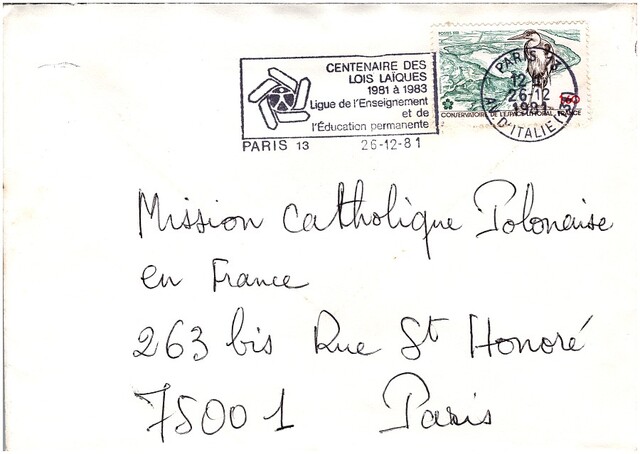 CENTENAIRE DES
LOIS LAÏQUES
1981 à 1983
Ligue de l'Enseignement
et de
l'Éducation permanente
PARIS 13 26-12-81
PARIS 13
26-12
1981
AV. D'ITALIE (13)
CONSERVATOIRE DE L'ESPACE LITTORAL, FRANCE
Mission Catholique Polonaise
en France
263 bis Rue St Honoré
75001 Paris